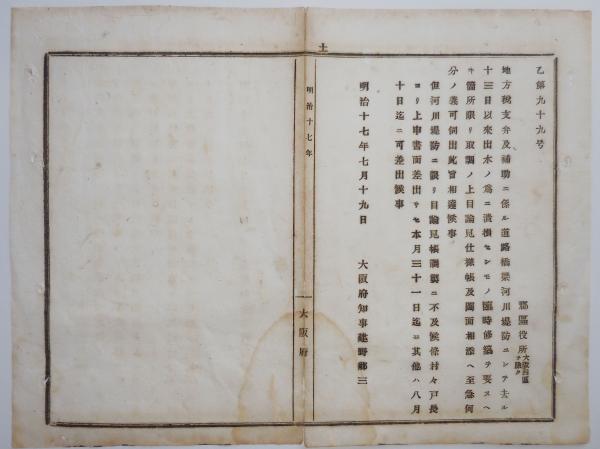 土
乙第九十九号
郡區役所 大阪四區ヲ除ク
地方税支弁及補助ニ係ル道路橋梁河川堤防ニシテ去ル
十三日以来出水ノ為ニ潰損セシモノ臨時修繕ヲ要スヘ
キ箇所限リ取調ノ上目論見仕様帳及圖面相添ヘ至急何
分ノ義可伺出此旨相達候事
但河川堤防ニ限リ目論見帳調製ニ不及候條村々戸長
ヨリ上申書面差出サセ本月三十一日迄ニ其他ハ八月
十日迄ニ可差出候事
明治十七年七月十九日
大阪府知事建野郷三
明治十七年
大阪府